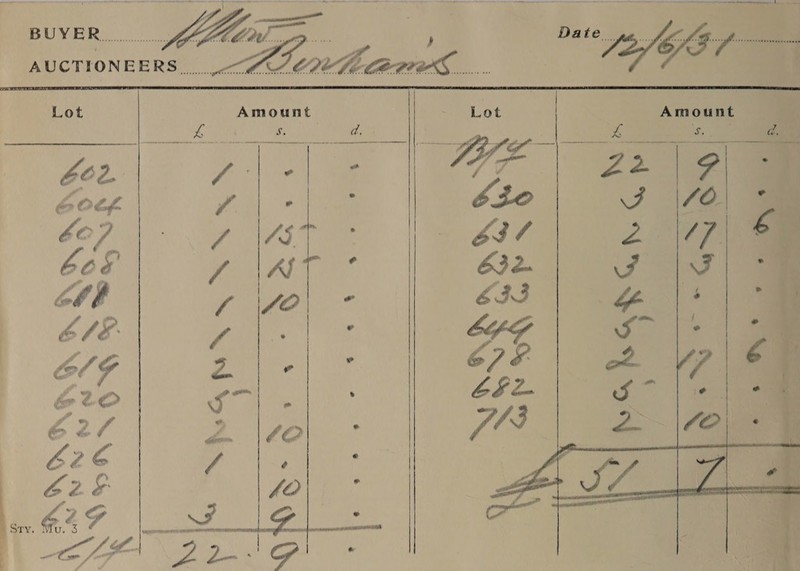 BUYER Date 12/6/31
AUCTIONEERS Bonhams
Lot Amount
£ s. d.
602 1 " "
604 1 " "
607 1 15 "
608 1 15 "
611 1 10 "
618 1 " "
619 2 " "
620 5 " "
621 2 10 "
626 1 " "
628 10 "
629 3 9 "
STY. Mu. 3
C/F 22 . 9 "
Lot Amount
£ s. d.
B/F 22 9 "
630 3 10 "
631 2 17 6
632 3 3 "
633 4 " "
649 5 " "
678 2 17 6
682 5 " "
713 2 10 "
£ 51 7 "